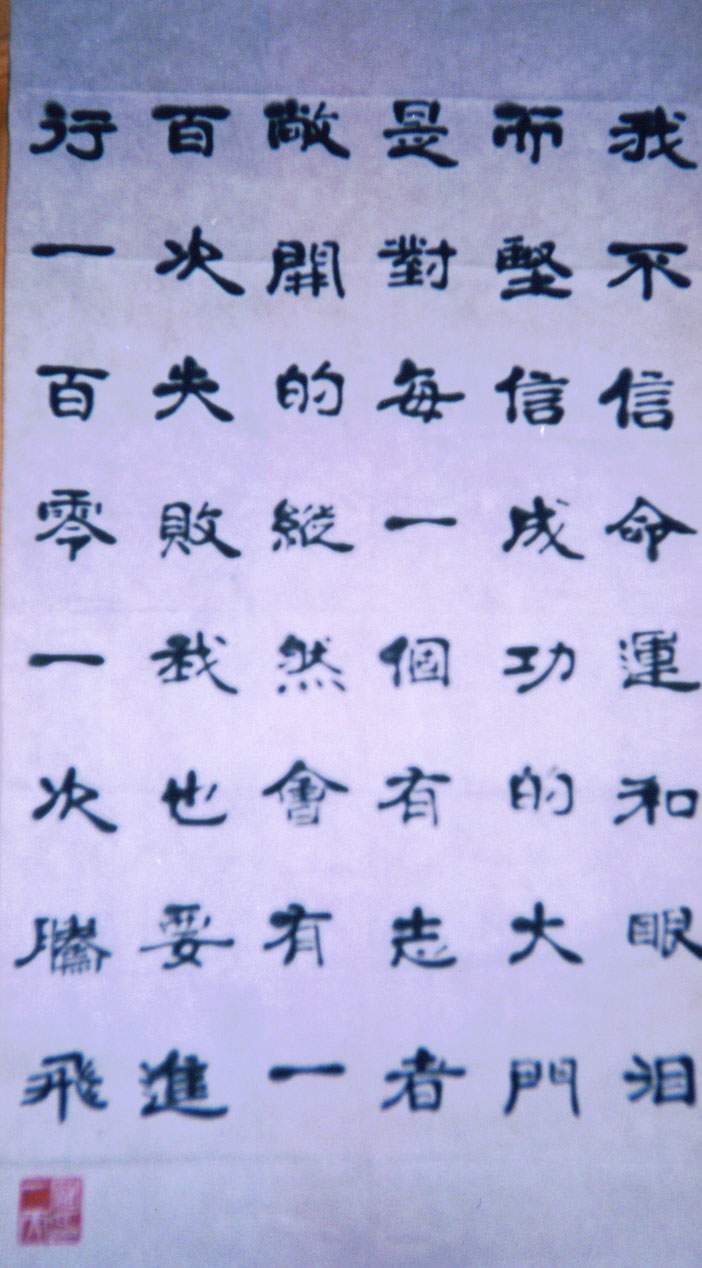 我不信命運和眼泪
而堅信成功的大門
是對每一個有志者
敞開的縱然會有一
百次失敗我也要進
行一百零一次騰飛